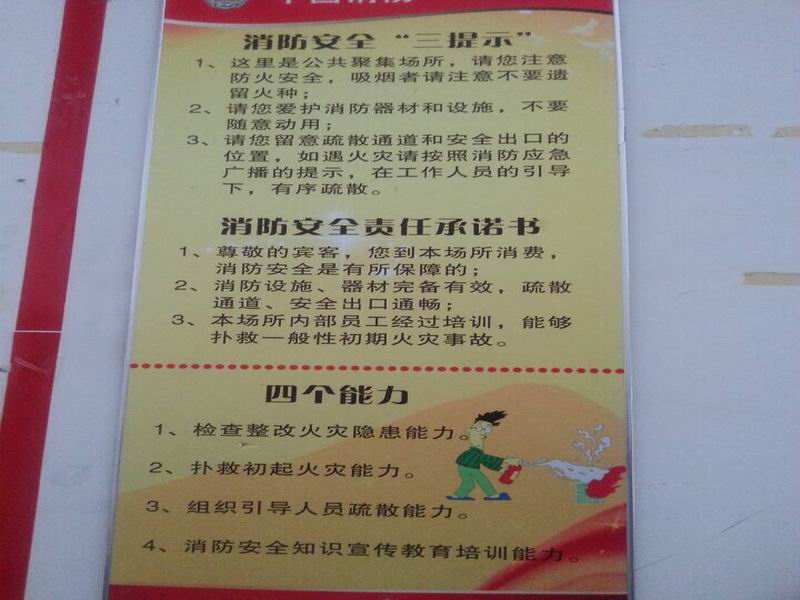 中国消防
消防安全“三提示”
1、这里是公共聚集场所，请您注意
防火安全，吸烟者请注意不要遗
留火种；
2、请您爱护消防器材和设施，不要
随意动用；
3、请您留意疏散通道和安全出口的
位置，如遇火灾请按照消防应急
广播的提示，在工作人员的引导
下，有序疏散。
消防安全责任承诺书
1、尊敬的宾客，您到本场所消费，
消防安全是有所保障的；
2、消防设施、器材完备有效，疏散
通道、安全出口通畅；
3、本场所内部员工经过培训，能够
扑救一般性初期火灾事故。
四个能力
1、检查整改火灾隐患能力。
2、扑救初起火灾能力。
3、组织引导人员疏散能力。
4、消防安全知识宣传教育培训能力。